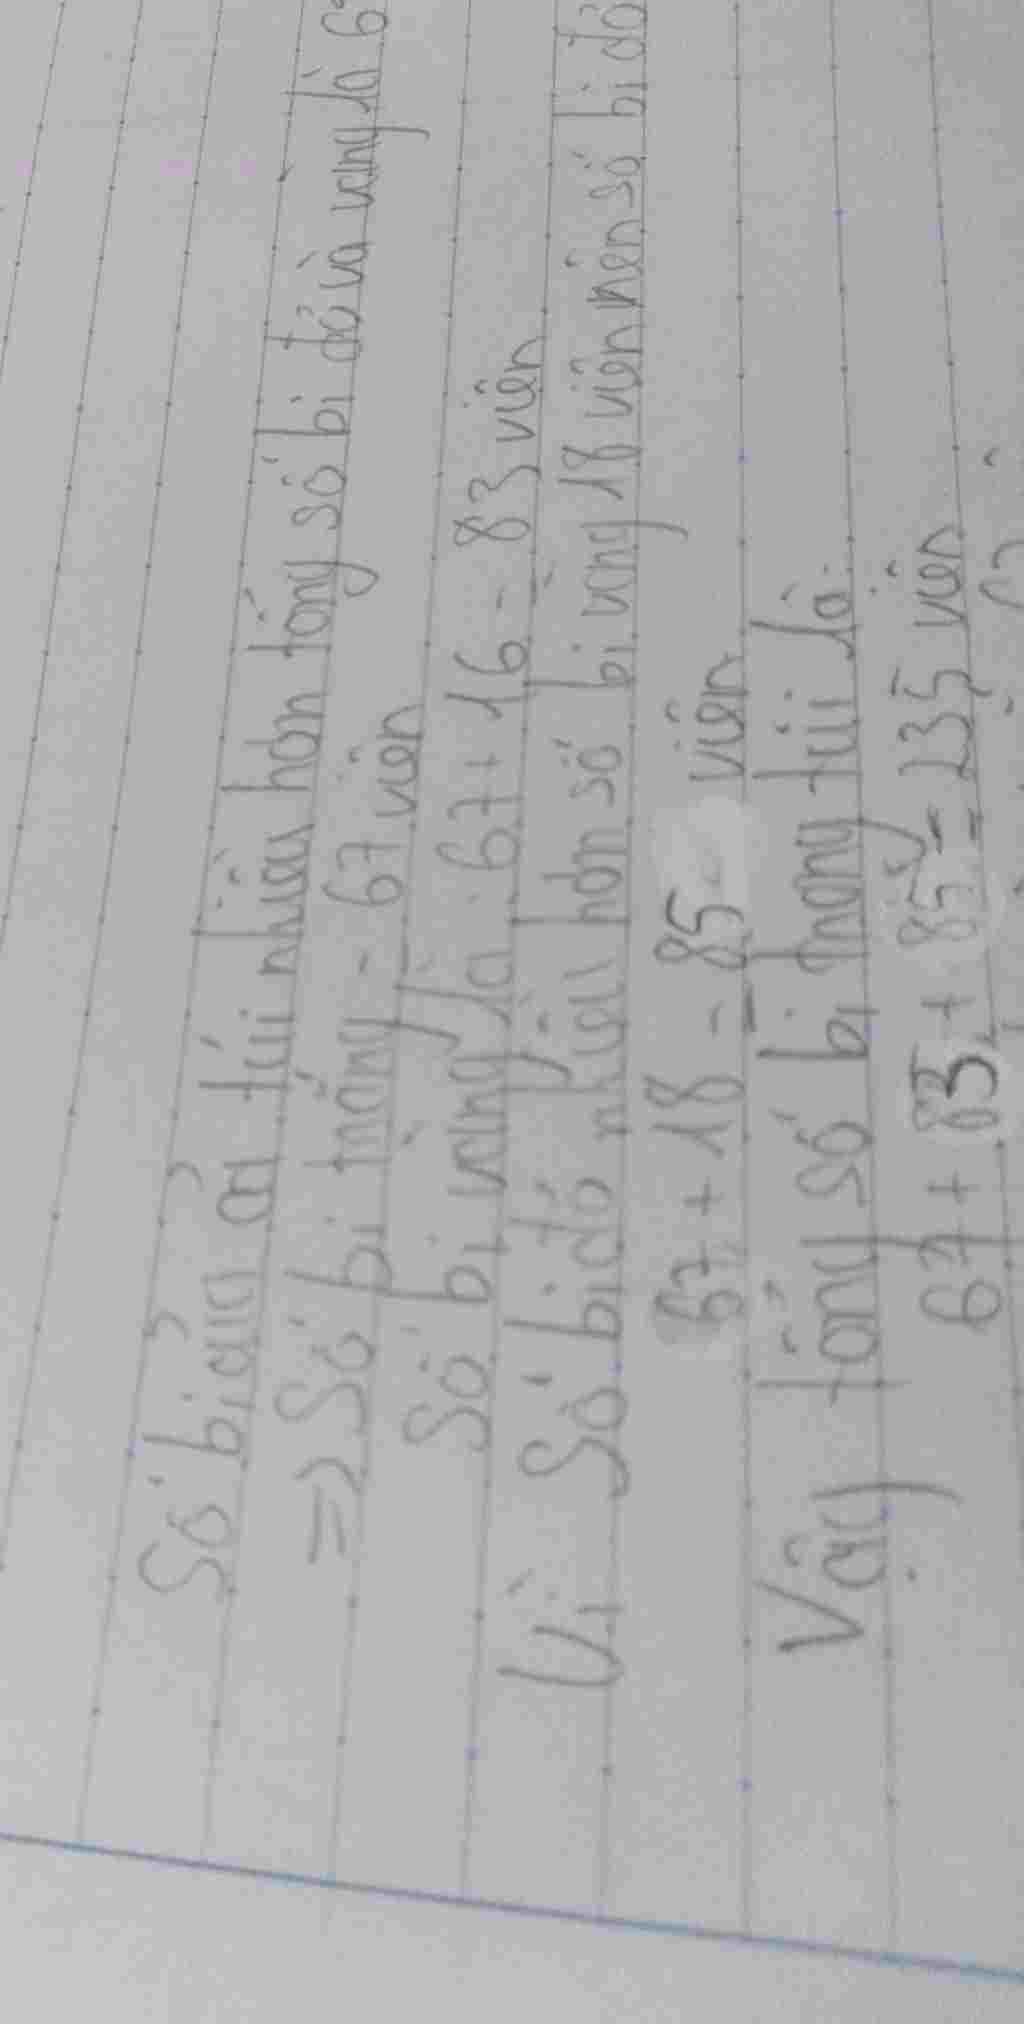 Số bi của cả túi nhiều hơn tổng số bi đỏ và vàng là 6
=> Số bi trắng = 67 viên
Số bi vàng là: 67 + 16 = 83 viên
Vì số bi đỏ nhiều hơn số bi vàng 18 viên nên số bi đỏ
67 + 18 = 85 viên
Vậy tổng số bi trong túi là:
67 + 83 + 85 = 235 viên